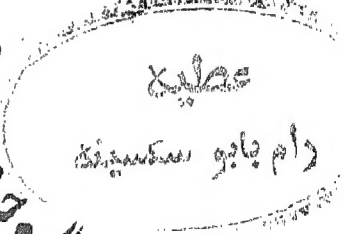 عطیہ
رام بابو سکسینہ